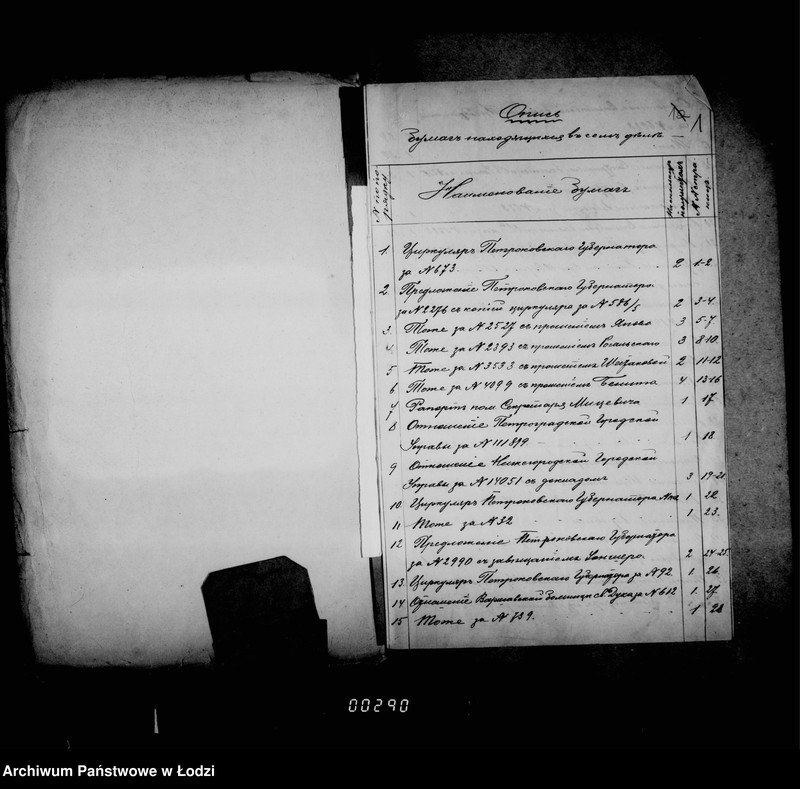 Опись
1
бумагъ находящихся въ семъ дѣлѣ
№ по порядку
Наименованіе бумагъ
№№ страницъ
1. Циркуляръ Петроковскаго Губернатора
за № 673. 2 1-2
2. Предложеніе Петроковскаго Губернатора
за № 2276 съ копіей циркуляра за № 586/5 2 3-4
3. Тоже за № 2527 съ прошеніемъ 3 5-7
4. Тоже за № 2393 съ прошеніемъ Рогальскаго 3 8-10
5 Тоже за № 3533 съ прошеніемъ 2 11-12
6 Тоже за № 4099 съ прошеніемъ 4 13-16
7 Рапортъ пом. Секретаря Мицевича 1 17
8 Отношеніе Петроградской Городской
Управы за № 111879 1 18
9 Отношеніе Нижегородской Городской
Управы за № 14051 съ докладомъ 3 19-21
10. Циркуляръ Петроковскаго Губернатора 1 22
11 Тоже за № 32 1 23.
12 Предложеніе Петроковскаго Губернатора
за № 2990 съ завѣщаніемъ 2 24-25
13. Циркуляръ Петроковскаго Губернатора за № 92. 1 26
14 Отношеніе Варшавской больницы Св. Духа за № 612 1. 27.
15 Тоже за № 789. 1 28
00290
Archiwum Państwowe w Łodzi